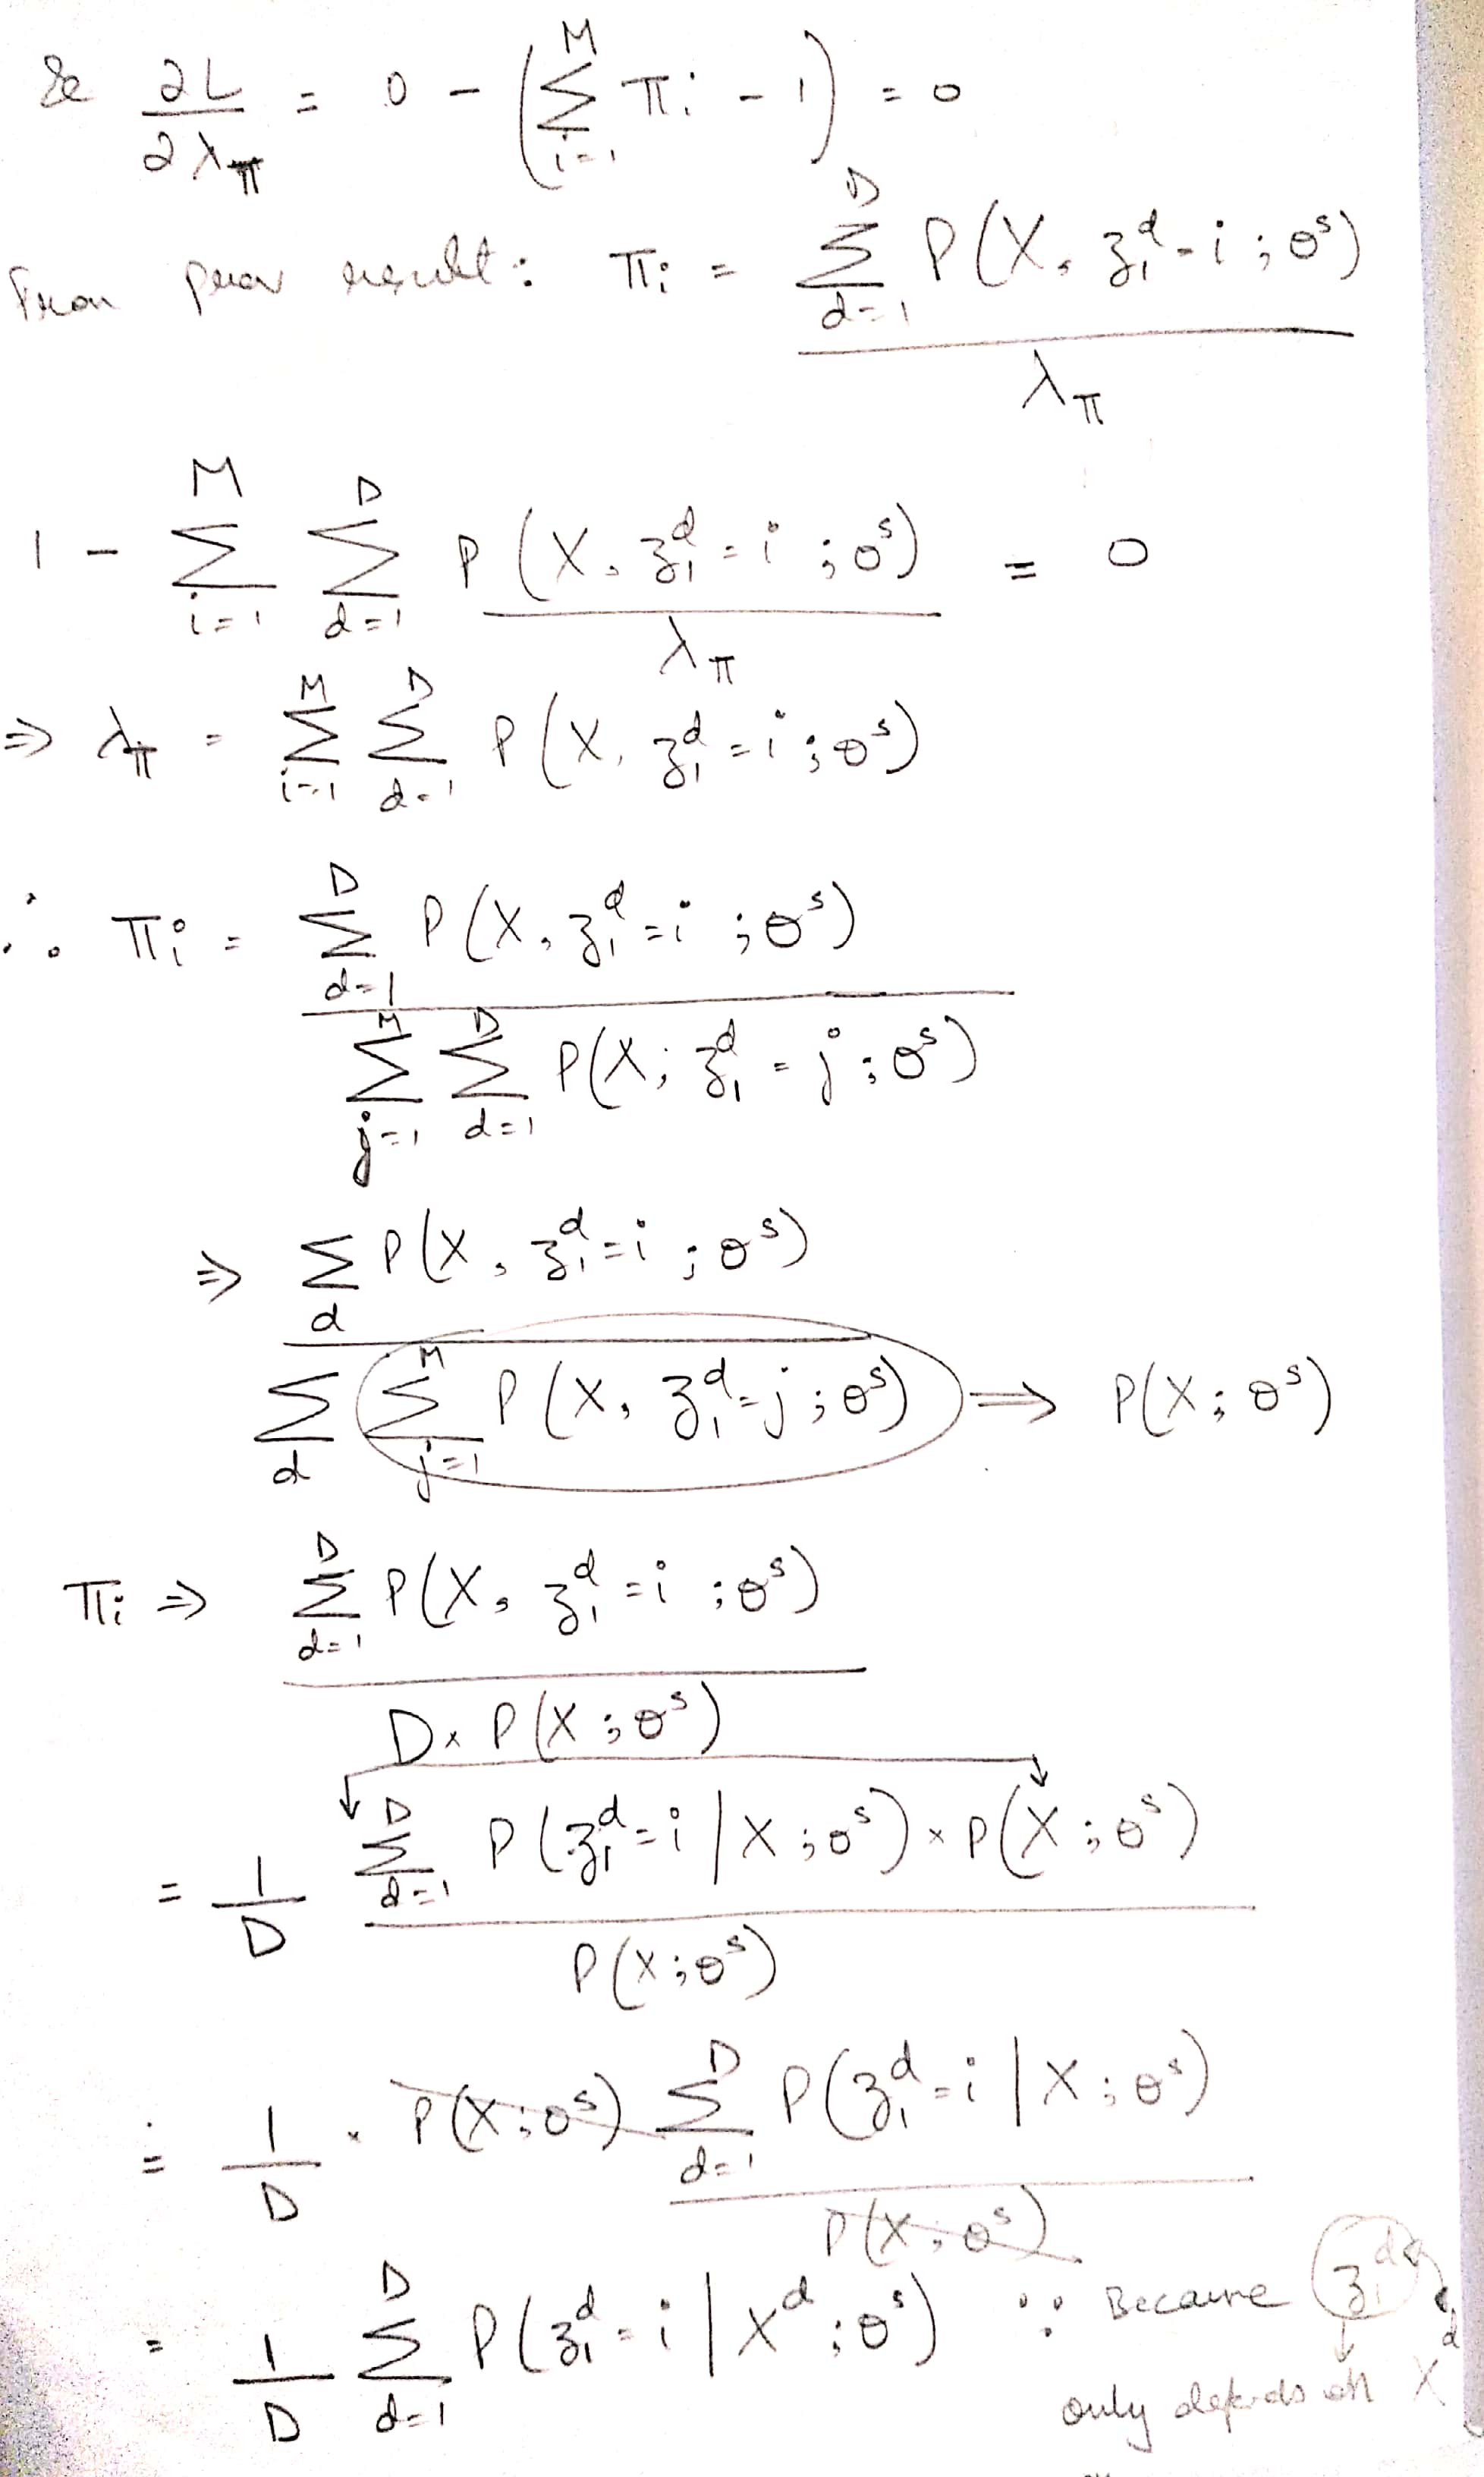 & ∂L/∂λ_π = 0 - (Σ_{i=1}^{M} π_i - 1) = 0
From prev result: π_i = Σ_{d=1}^{D} P(X, z_1^d = i ; θ^s) / λ_π
1 - Σ_{i=1}^{M} Σ_{d=1}^{D} P(X, z_1^d = i ; θ^s) / λ_π = 0
⇒ λ_π = Σ_{i=1}^{M} Σ_{d=1}^{D} P(X, z_1^d = i ; θ^s)
∴ π_i = Σ_{d=1}^{D} P(X, z_1^d = i ; θ^s) / Σ_{j=1}^{M} Σ_{d=1}^{D} P(X; z_1^d = j ; θ^s)
⇒ Σ_d P(X, z_1^d = i ; θ^s) / Σ_d Σ_{j=1}^{M} P(X, z_1^d = j ; θ^s) ⇒ P(X; θ^s)
π_i ⇒ Σ_{d=1}^{D} P(X, z_1^d = i ; θ^s) / D × P(X ; θ^s)
= 1/D Σ_{d=1}^{D} P(z_1^d = i | X ; θ^s) × P(X ; θ^s) / P(X ; θ^s)
= 1/D · P(X ; θ^s) Σ_{d=1}^{D} P(z_1^d = i | X ; θ^s) / P(X ; θ^s)
= 1/D Σ_{d=1}^{D} P(z_1^d = i | X^d ; θ^s) ∵ Because z_1^d
only depends on X^d